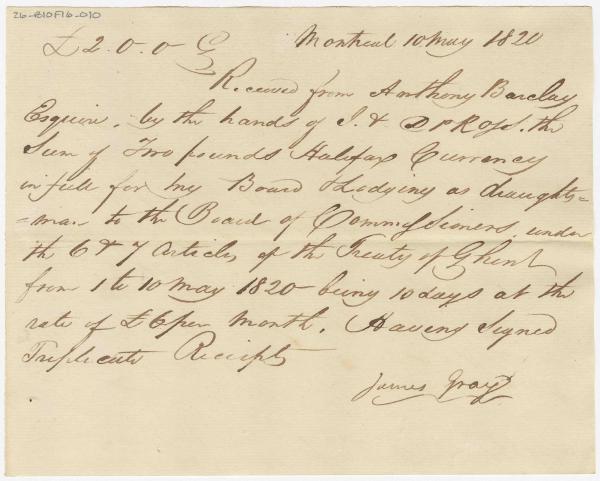 26-B10F16-010
£2.0.0 Montreal 10 May 1820
Received from Anthony Barclay
Esquire, by the hands of J. & D P Ross. the
Sum of Two pounds Halifax Currency
in full for my Board & Lodging as draughts=
=man to the Board of Commissioners, under
the 6 & 7 Articles of the Treaty of Ghent
from 1 to 10 May 1820 being 10 days at the
rate of £6 per Month. Having Signed
Triplicate Receipts
James Gray